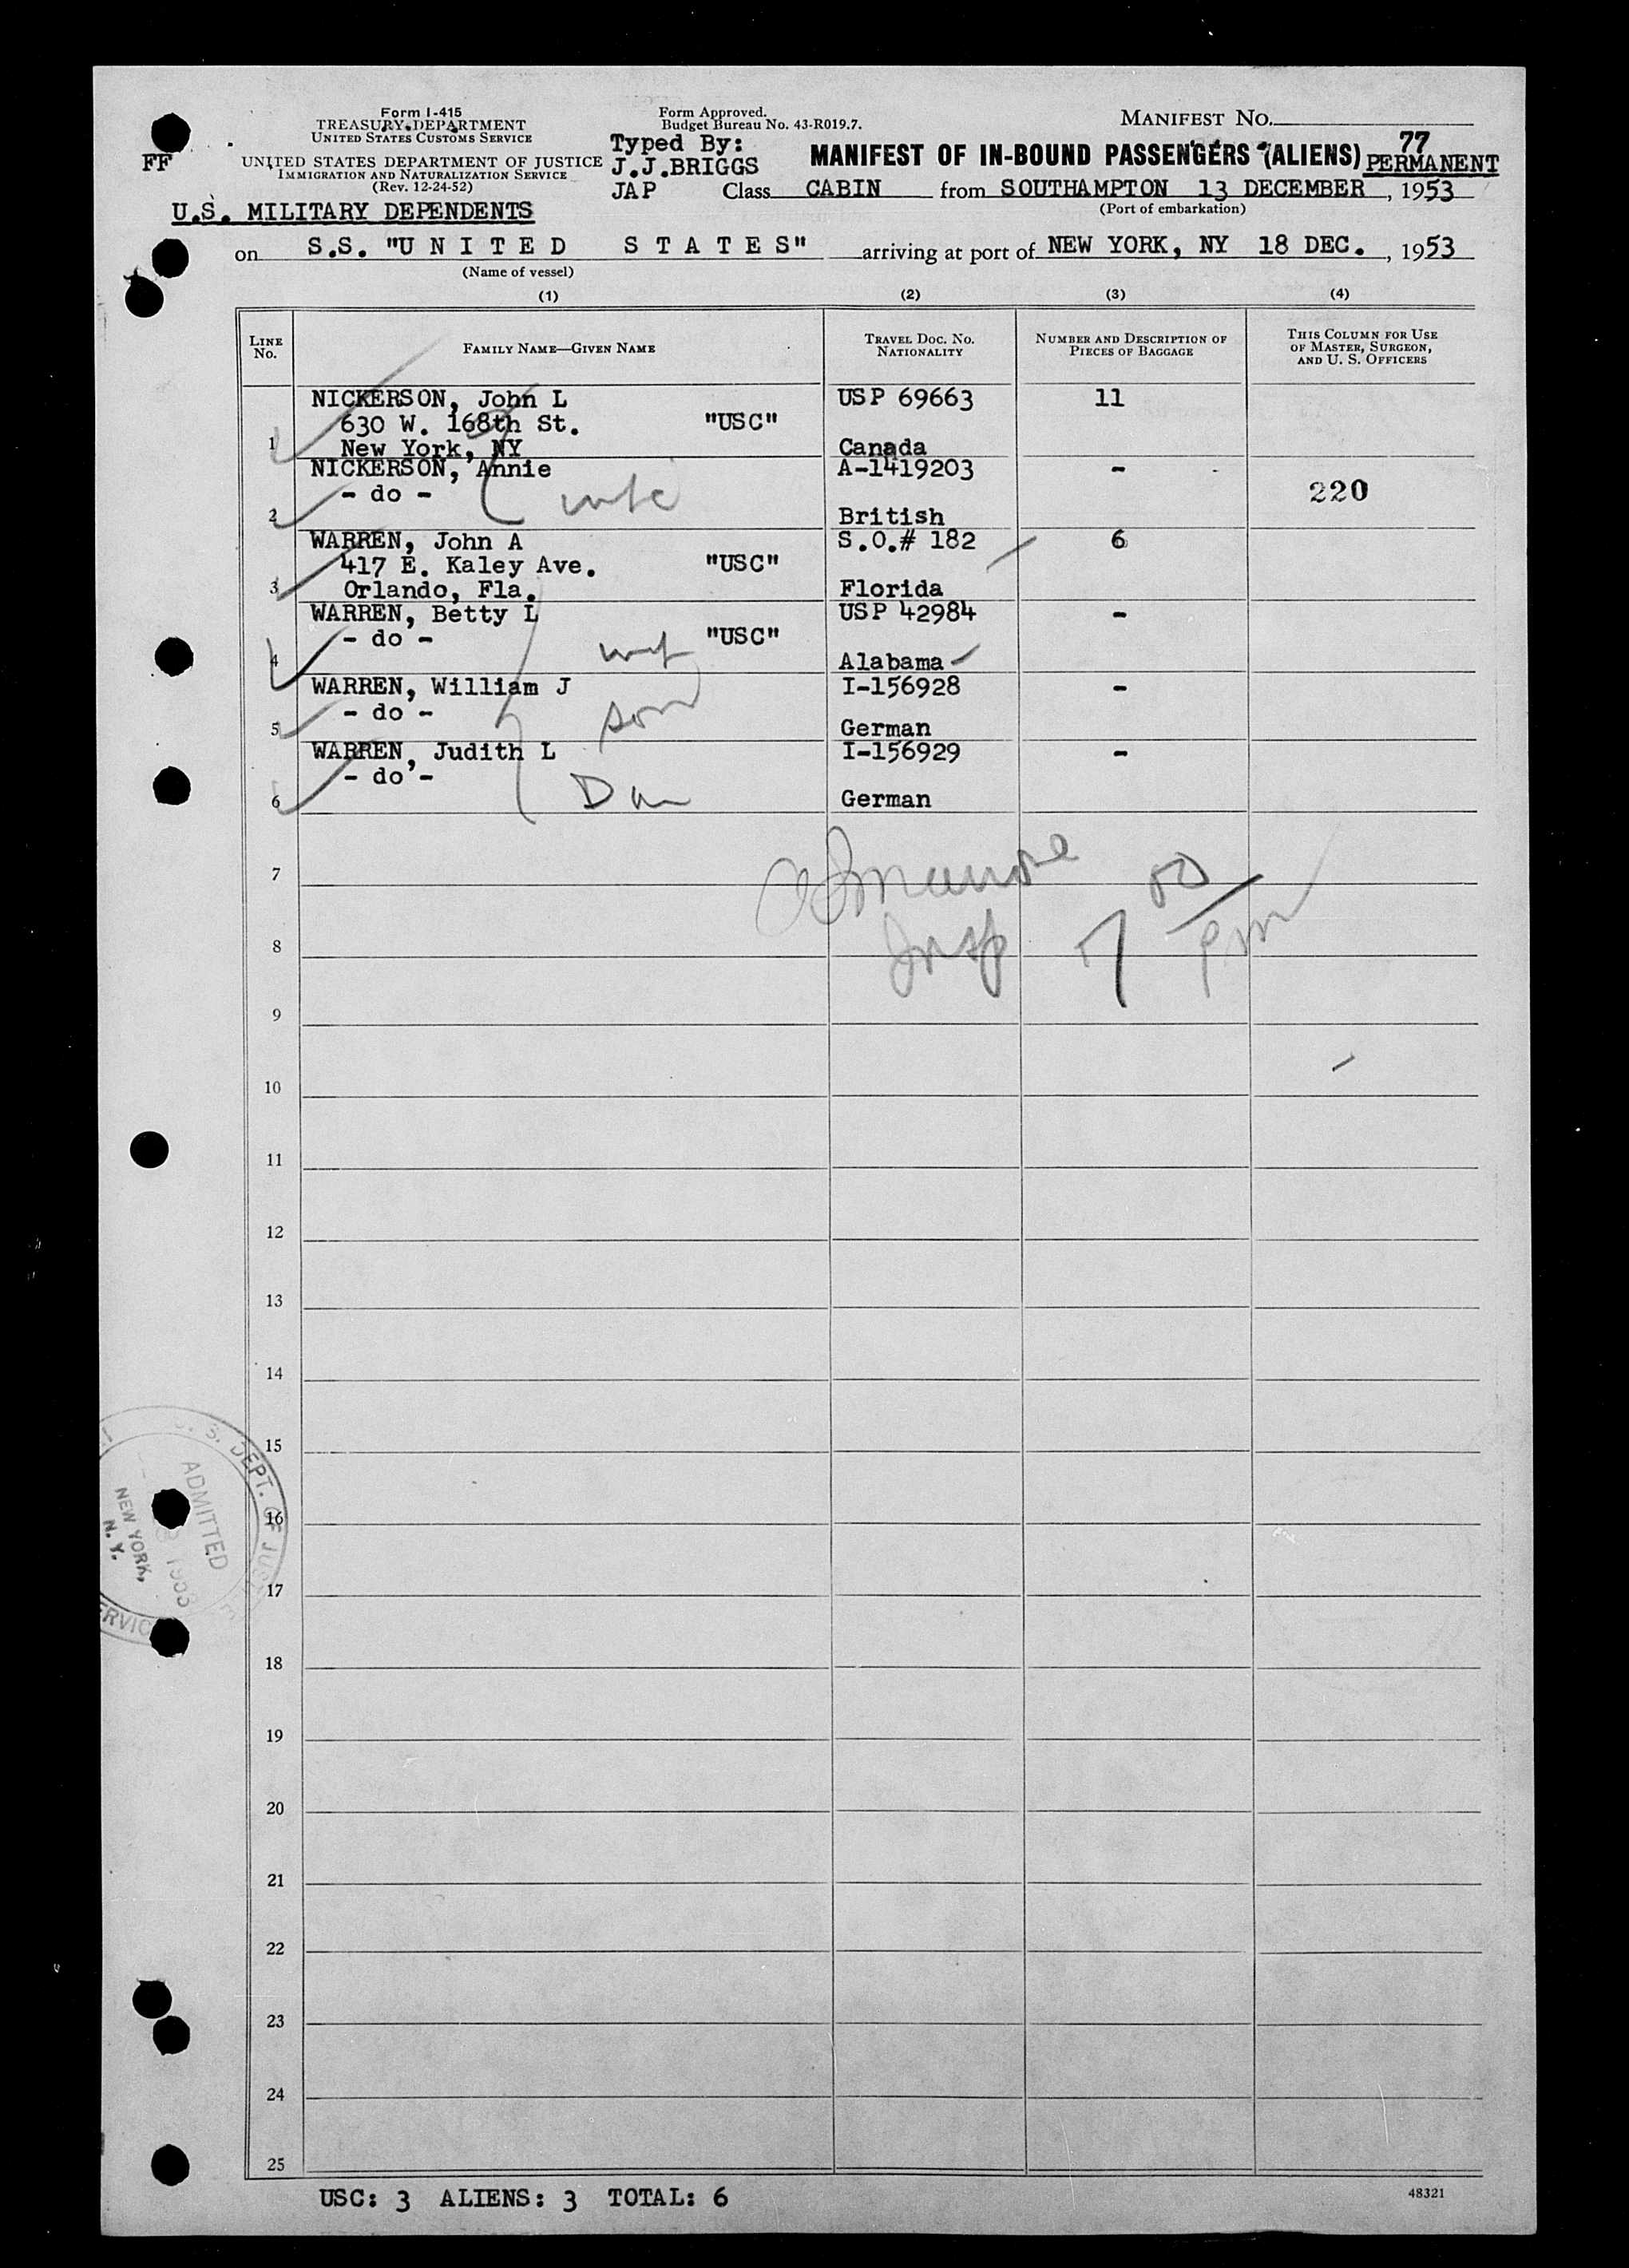 Form I-415
TREASURY DEPARTMENT
UNITED STATES CUSTOMS SERVICE
FF
UNITED STATES DEPARTMENT OF JUSTICE
IMMIGRATION AND NATURALIZATION SERVICE
(Rev. 12-24-52)
U.S. MILITARY DEPENDENTS
Form Approved.
Budget Bureau No. 43-R019.7.
Typed By:
J.J.BRIGGS
JAP
MANIFEST NO.
77
MANIFEST OF IN-BOUND PASSENGERS (ALIENS) PERMANENT
Class CABIN from SOUTHAMPTON 13 DECEMBER, 1953
(Port of embarkation)
on S.S. "U N I T E D S T A T E S" arriving at port of NEW YORK, NY 18 DEC., 1953
(Name of vessel)
(1) (2) (3) (4)
LINE NO. FAMILY NAME—GIVEN NAME TRAVEL DOC. NO. NATIONALITY NUMBER AND DESCRIPTION OF PIECES OF BAGGAGE THIS COLUMN FOR USE OF MASTER, SURGEON, AND U. S. OFFICERS
NICKERSON, John L USP 69663 11
630 W. 168th St. "USC"
1 New York, NY Canada
NICKERSON, Annie A-1419203 -
- do - wife 220
2 British
WARREN, John A S.O.# 182 6
417 E. Kaley Ave. "USC"
3 Orlando, Fla. Florida
WARREN, Betty L USP 42984 -
- do - "USC"
4 Alabama
WARREN, William J I-156928 -
- do - son
5 German
WARREN, Judith L I-156929 -
- do -
6 German
7
Insp 7 00/pm
8
9
10
11
12
13
14
15
16
17
18
19
20
21
22
23
24
25
U. S. DEPT. OF JUST
ADMITTED
NEW YORK,
N. Y.
USC: 3 ALIENS: 3 TOTAL: 6
48321